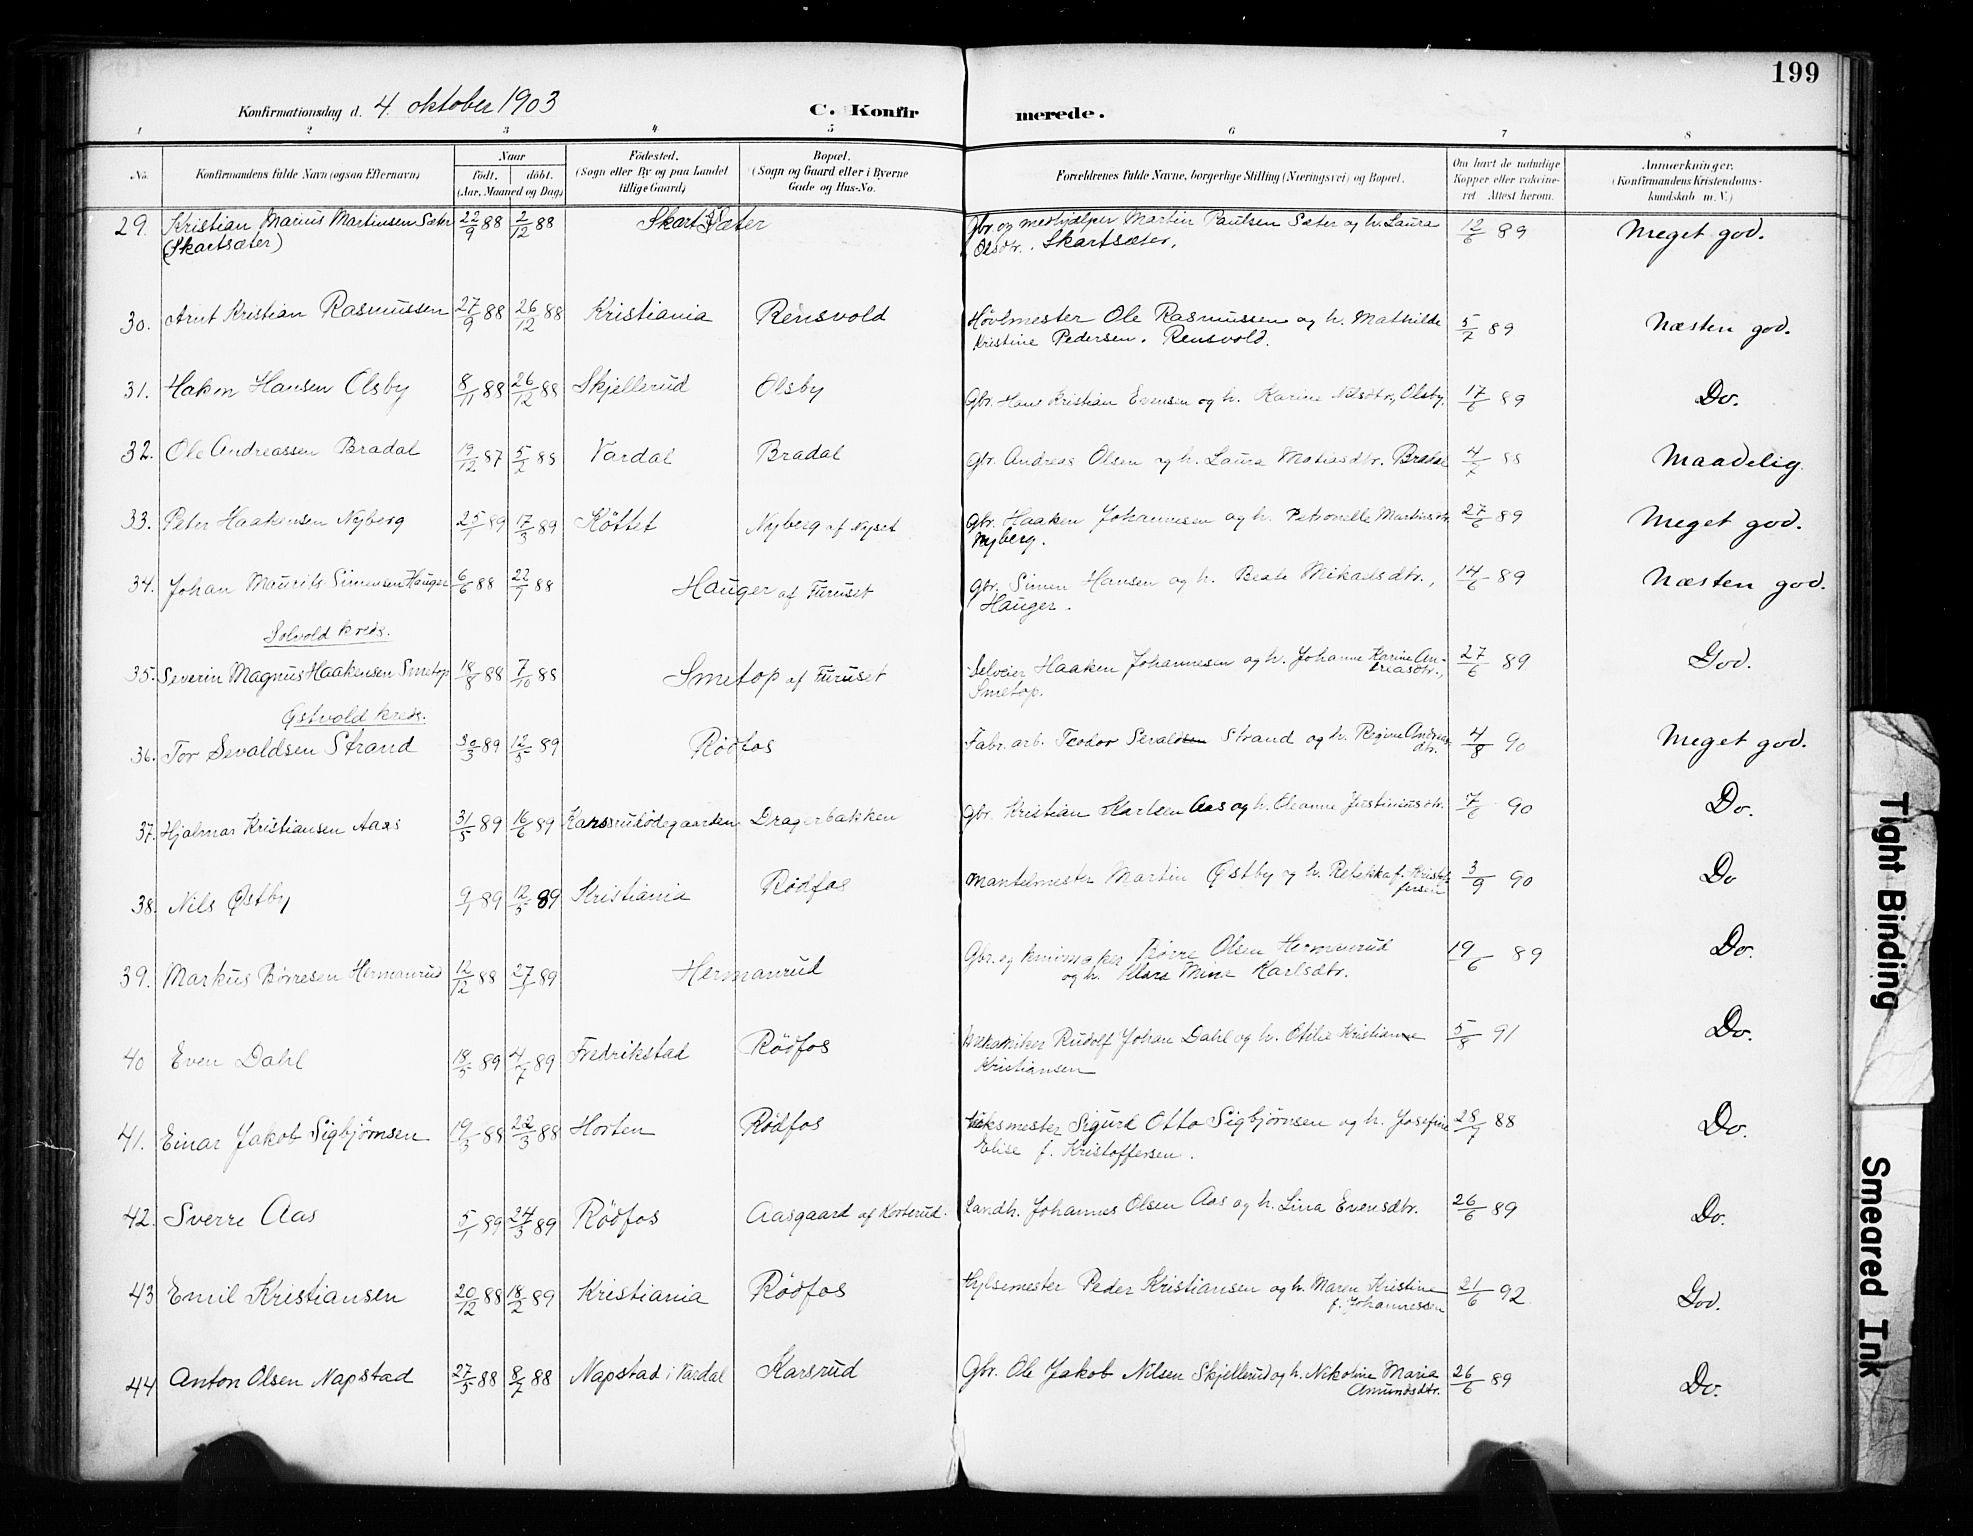 199
Konfirmationsdag d. 4. oktober 1903 C. Konfirmerede.
1 2 3 4 5 6 7 8
No. Konfirmandens fulde Navn (ogsaa Efternavn) Naar født. døbt. (Aar, Maaned og Dag) Fødested. (Sogn eller By og paa Landet tillige Gaard) Bopæl. (Sogn og Gaard eller i Byerne Gade og Hus-No. Forældrenes fulde Navne, borgerlige Stilling (Næringsvei) og Bopæl. Om havt de naturlige Kopper eller vaccineret Attest herom. Anmærkninger. (Konfirmandens Kristendomskundskab m. V.)
29. Kristian Marius Martinsen Sæter 22/9 88 2/12 88 Skartsæter Gbr. og medhjælper Martin Paulsen Sæter og h. Laura 12/6 89 Meget god.
(Skartsæter) Olsdtr. Skartsæter.
30. Arnt Kristian Rasmussen 27/9 88 26/12 88 Kristiania Rensvold Høvlmester Ole Rasmussen og h. Mathilde 5/2 89 Næsten god.
Kristine Pedersen. Rensvold.
31. Hakon Hansen Olsby 8/11 88 26/12 88 Skjellerud Olsby Gbr. Hans Kristian Evensen og h. Karine Nilsdtr., Olsby. 17/6 89 Do.
32. Ole Andreassen Bradal 19/12 87 5/2 88 Vardal Bradal Gbr. Andreas Olsen og h. Laura Matiasdtr. Bradal 4/7 88 Maadelig
33. Peter Haakensen Nyberg 25/1 89 17/3 89 Køttet Nyberg af Nyset Gbr. Haaken Johannesen og h. Petronelle Martinsdtr. 27/6 89 Meget god.
Nyberg.
34. Johan Maurits Simensen Hauger 6/6 88 22/7 88 Hauger af Furuset Gbr. Simen Hansen og h. Beate Mikaelsdtr., 14/6 89 Næsten god.
Hauger.
Solvold kreds.
35. Severin Magnus Haakensen Smetop 18/8 88 7/10 88 Smetop af Furuset Selveier Haaken Johannesen og h. Johanne Karine Andreasdtr., 27/6 89 God.
Smetop.
Østvold kreds.
36. Tor Sevaldsen Strand 30/3 89 12/5 89 Rødfos Fabr. arb. Teodor Sevaldsen Strand og h. Regine Andreasdtr. 4/8 90 Meget god.
37. Hjalmar Kristiansen Aas 31/5 89 16/6 89 Karsrudødegaarden Dragerbakken Gbr. Kristian Karlsen Aas og h. Oleanne Justiniusdtr. 7/6 90 Do.
38. Nils Østby 9/1 89 12/5 89 Kristiania Rødfos Mantelmester Martin Østby og h. Rebekka f. Kristoffersen 3/9 90 Do
39. Markus Børresen Hermanrud 12/12 88 27/1 89 Hermanrud Gbr. og knivmaker Børre Olsen Hermanrud 19/6 89 Do.
og h. Klara Mine Karlsdtr.
40 Even Dahl 18/5 89 4/7 89 Fredrikstad Rødfos Mekaniker Rudolf Johan Dahl og h. Otilie Kristianne 5/8 91 Do.
Kristiansen
41. Einar Jakob Sigbjørnsen 19/3 88 22/3 88 Horten Rødfos Sigurd Otto Sigbjørnsen og h. Josefine 28/7 88 Do.
Elise f. Kristoffersen.
42. Sverre Aas 5/1 89 24/3 89 Rødfos Aasgaard af Korterud. Landh. Johannes Olsen Aas og h. Lina Evensdtr. 26/6 89 Do.
43 Emil Kristiansen 20/12 88 18/2 89 Kristiania Rødfos Hylsemester Peder Kristiansen og h. Maren Kristine 21/6 92 God.
f. Johannessen
44 Anton Olsen Napstad 27/5 88 8/7 88 Napstad i Vardal Karsrud Gbr. Ole Jakob Nilsen Skjellerud og h. Nikoline Maria 26/6 89 Do.
Amundsdtr.
Tight Binding
Smeared Ink